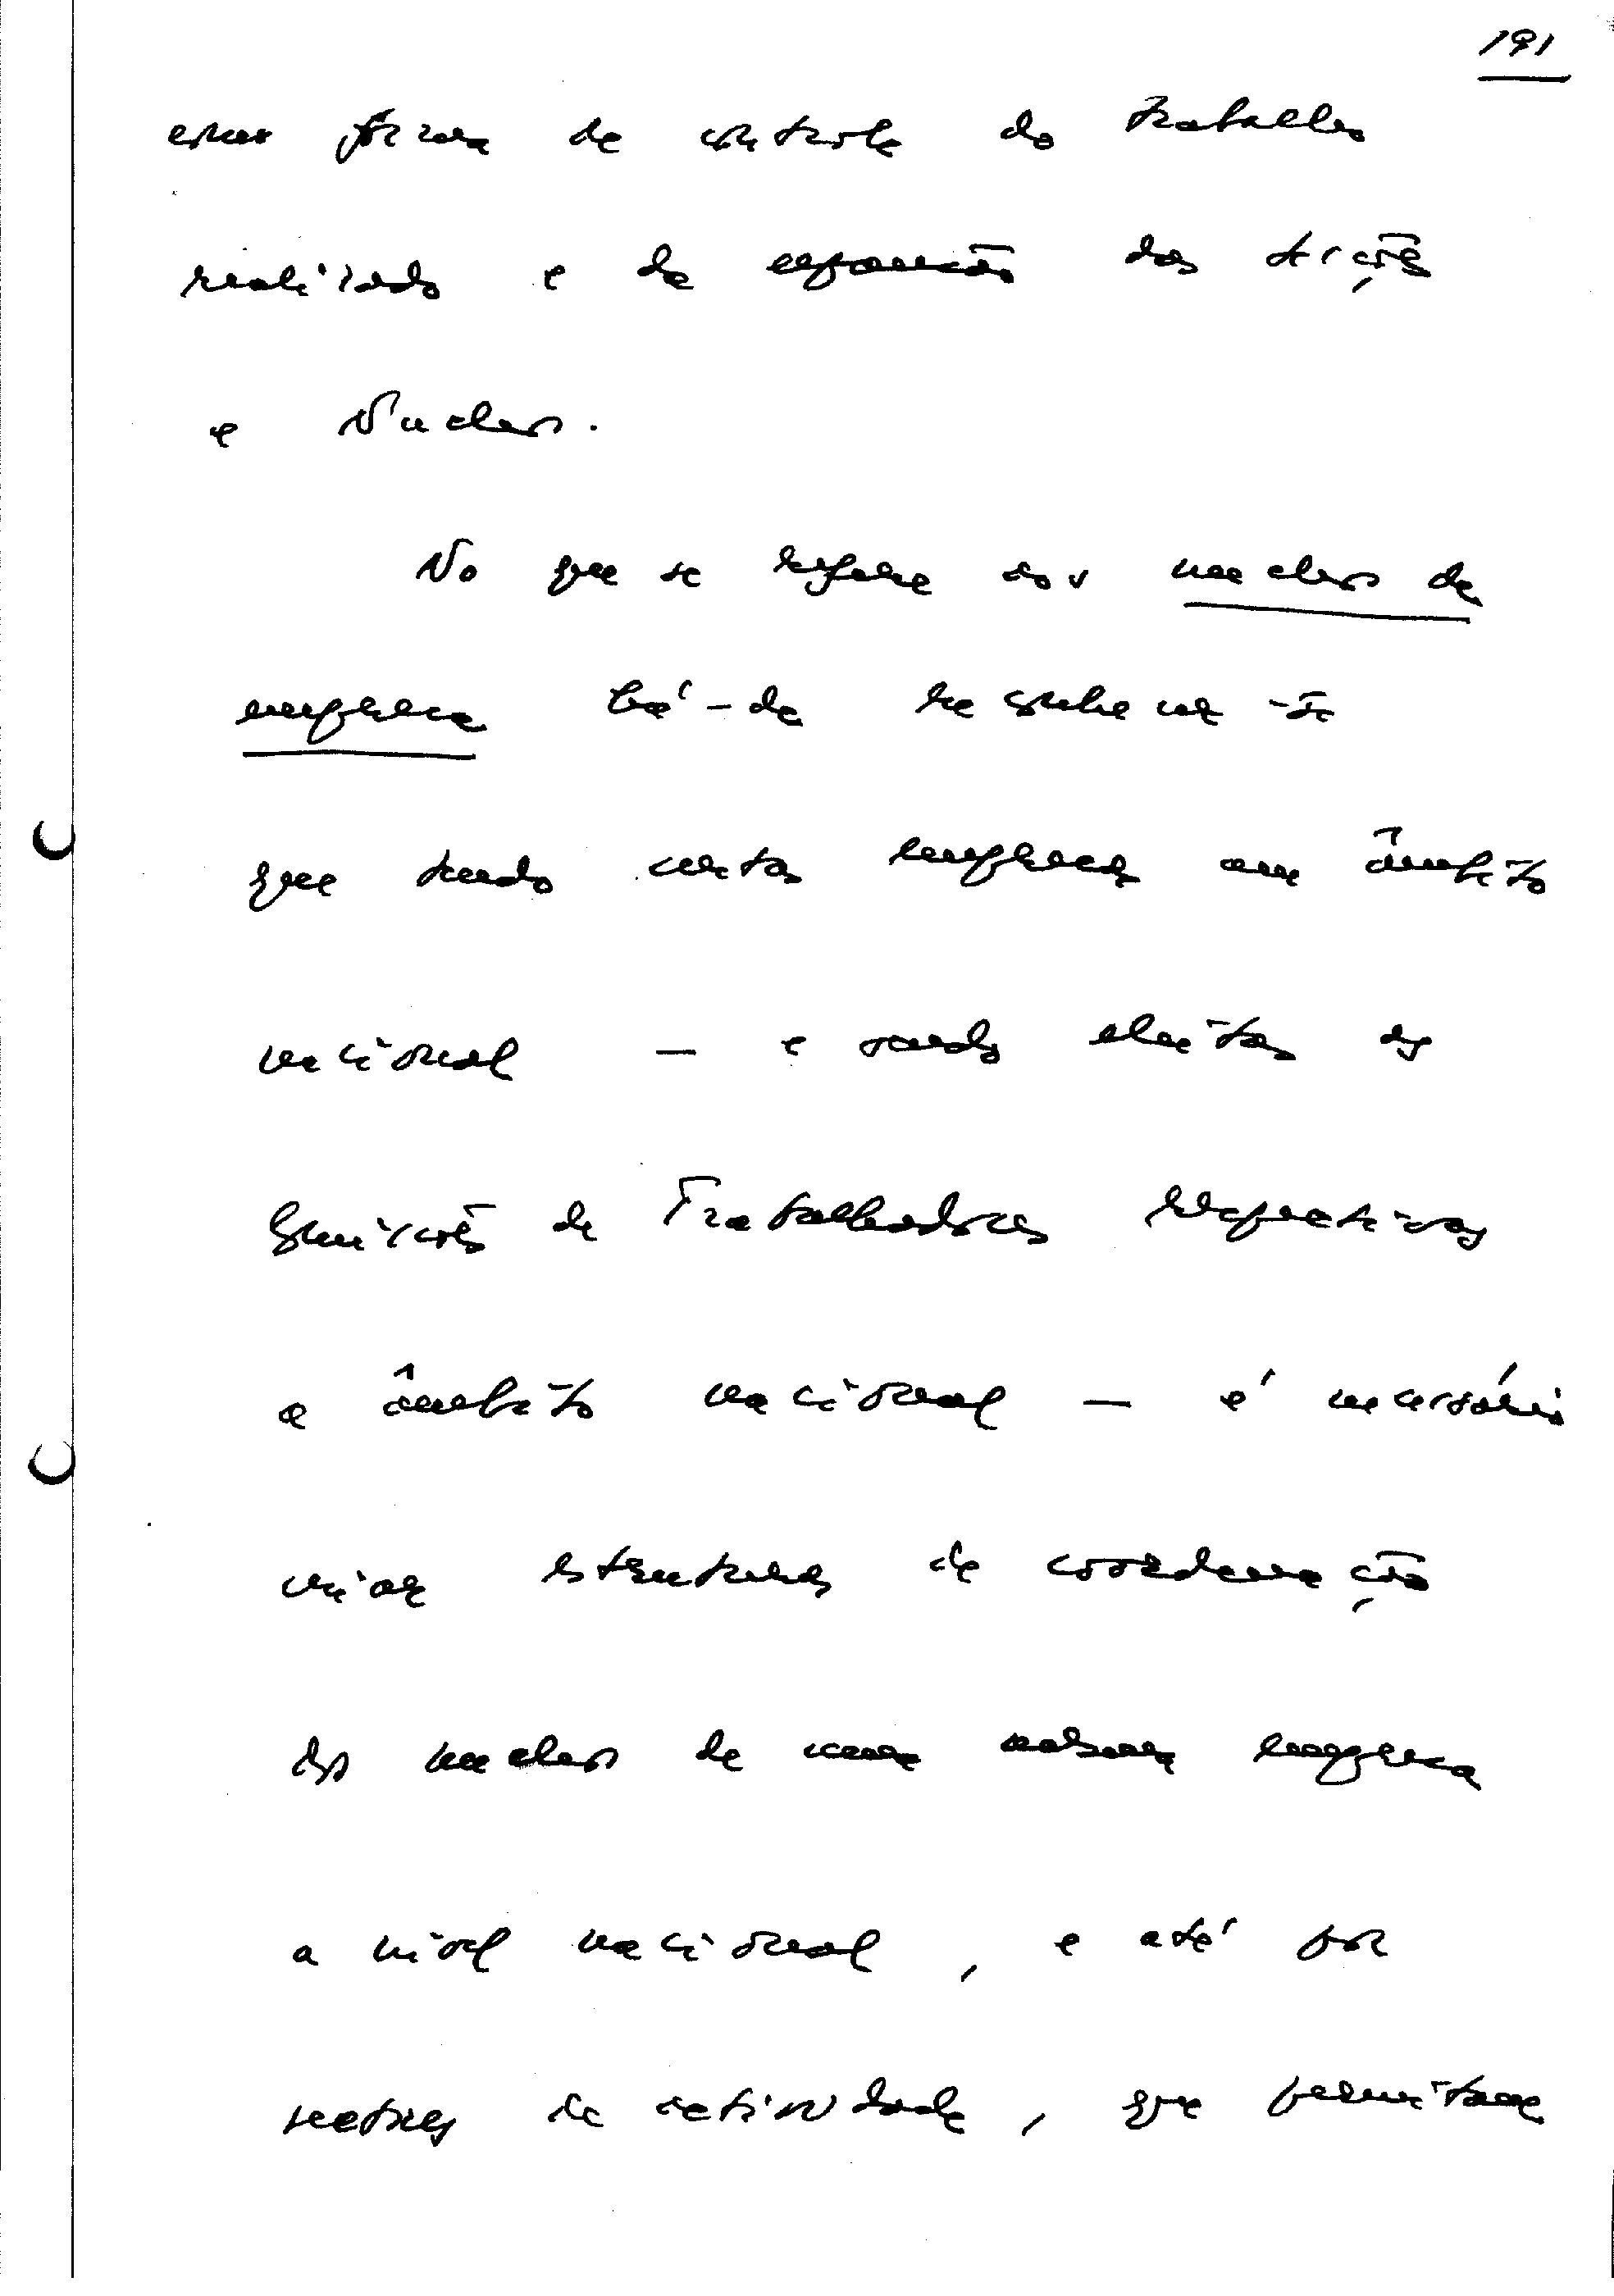 191
como forma de controle do trabalho
realizado e da expansão das secções
e Nucleos.
No que se refere aos nucleos de
empresa há-de reconhecer-se
que tendo certas empresas um âmbito
nacional — e sendo eleitas as
Comissões de Trabalhadores respectivas
a âmbito nacional — é necessário
criar estruturas de coordenação
dos nucleos de uma mesma empresa
a nivel nacional, e até por
sectores de actividade, que permitam